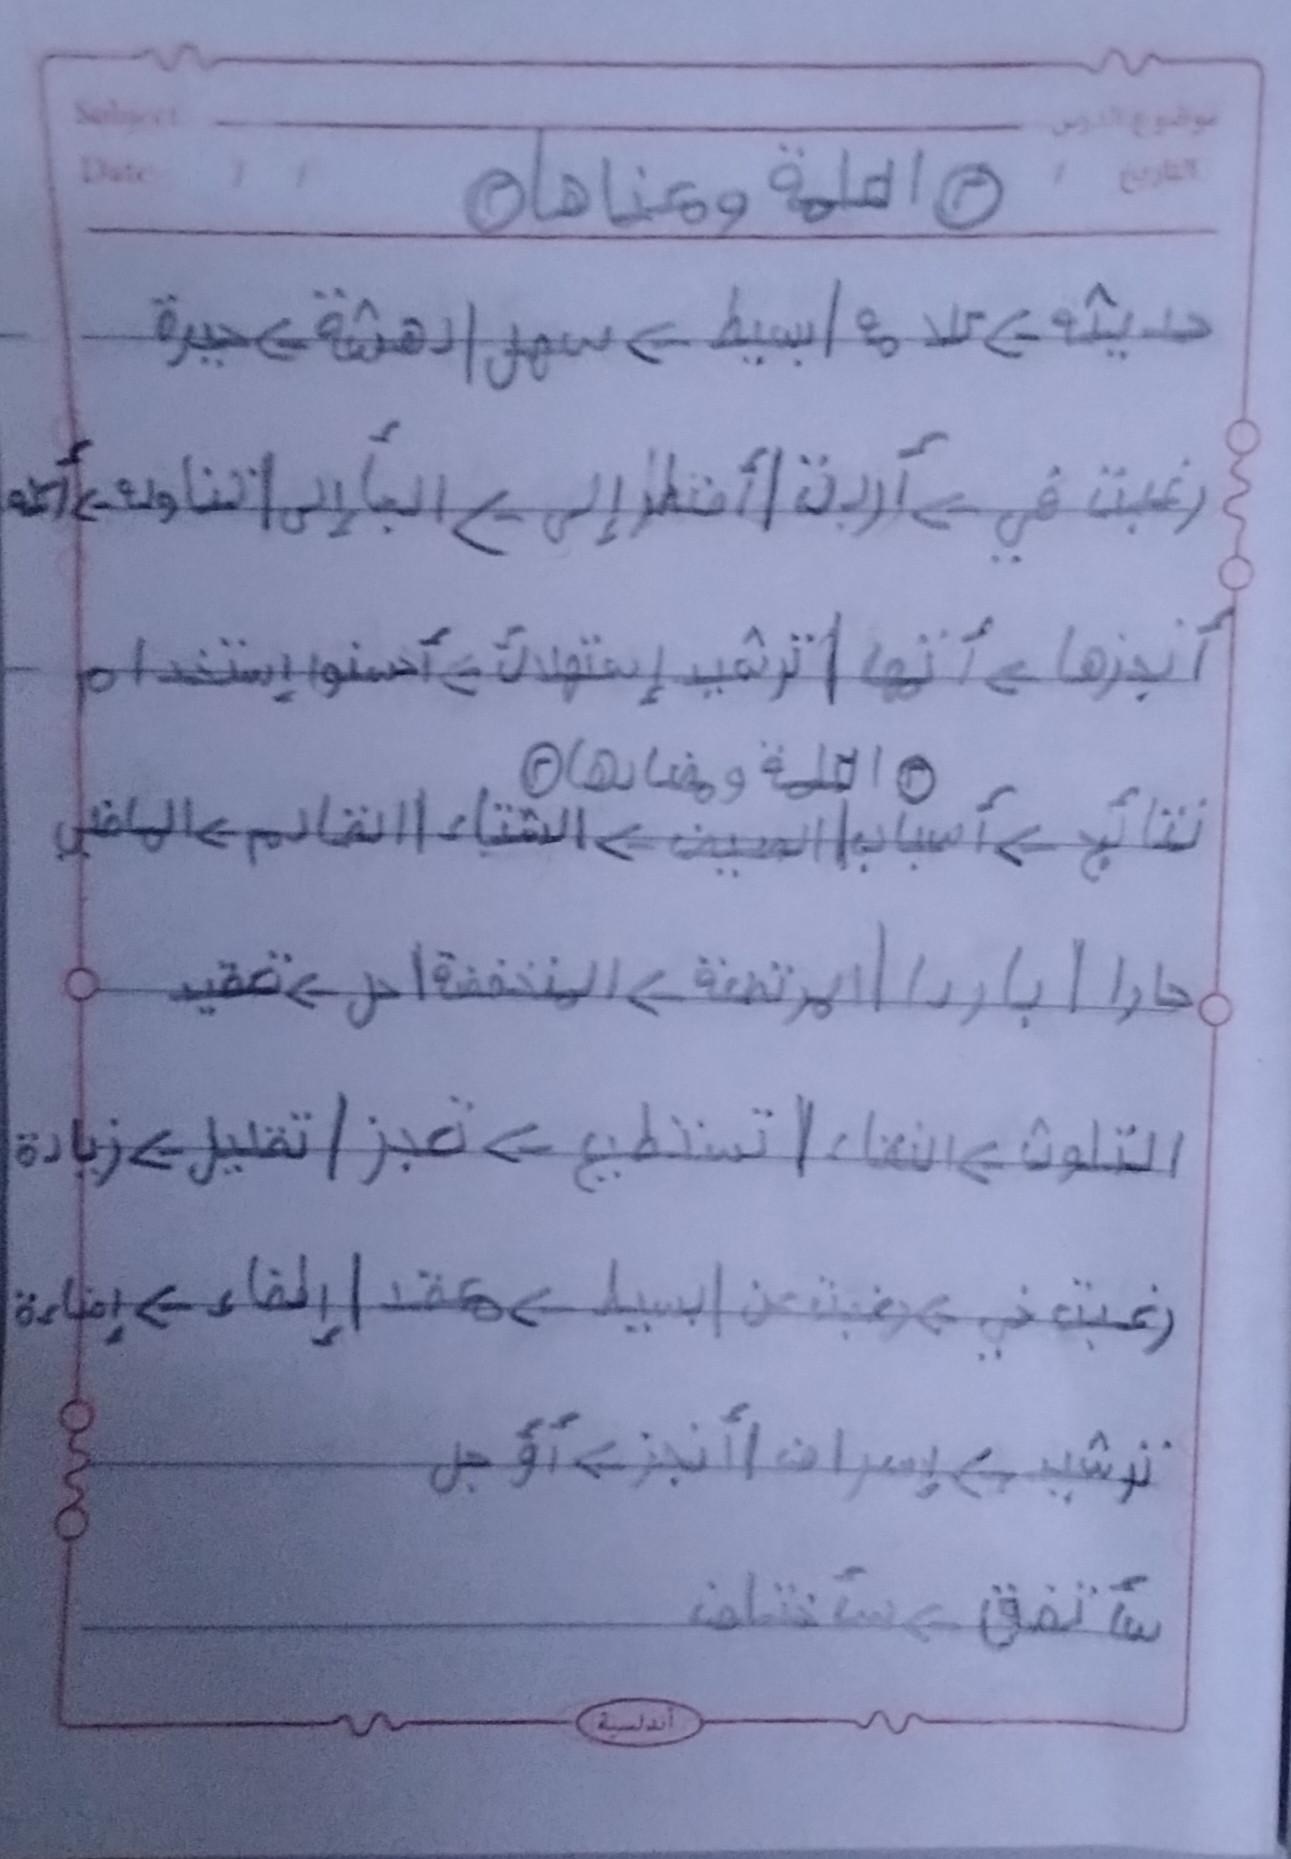 Subject موضوع الدرس
Date / / التاريخ /
الكلمة ومعناها
حديثه > كلامه / بسيط > سهل / دهشة > حيرة
رغبت في > أردت / أضطر إلى > ألجأ إلى / تناوله > أكله
أنجزها > أنهها / ترشيد إستهلاك > أحسنوا إستخدام
الكلمة ومضادها
نتائج > أسباب / الصيف > الشتاء / القادم > الماضي
حارا / باردا / المرتفعة > المنخفضة / حل > تعقيد
التلوث > النقاء / تستطيع > تعجز / تقليل > زيادة
رغبت في > رغبت عن / بسيط > معقد / إطفاء > إضاءة
ترشيد > إسراف / أنجز > أؤجل
سأتفق > سأختلف
أندلسية